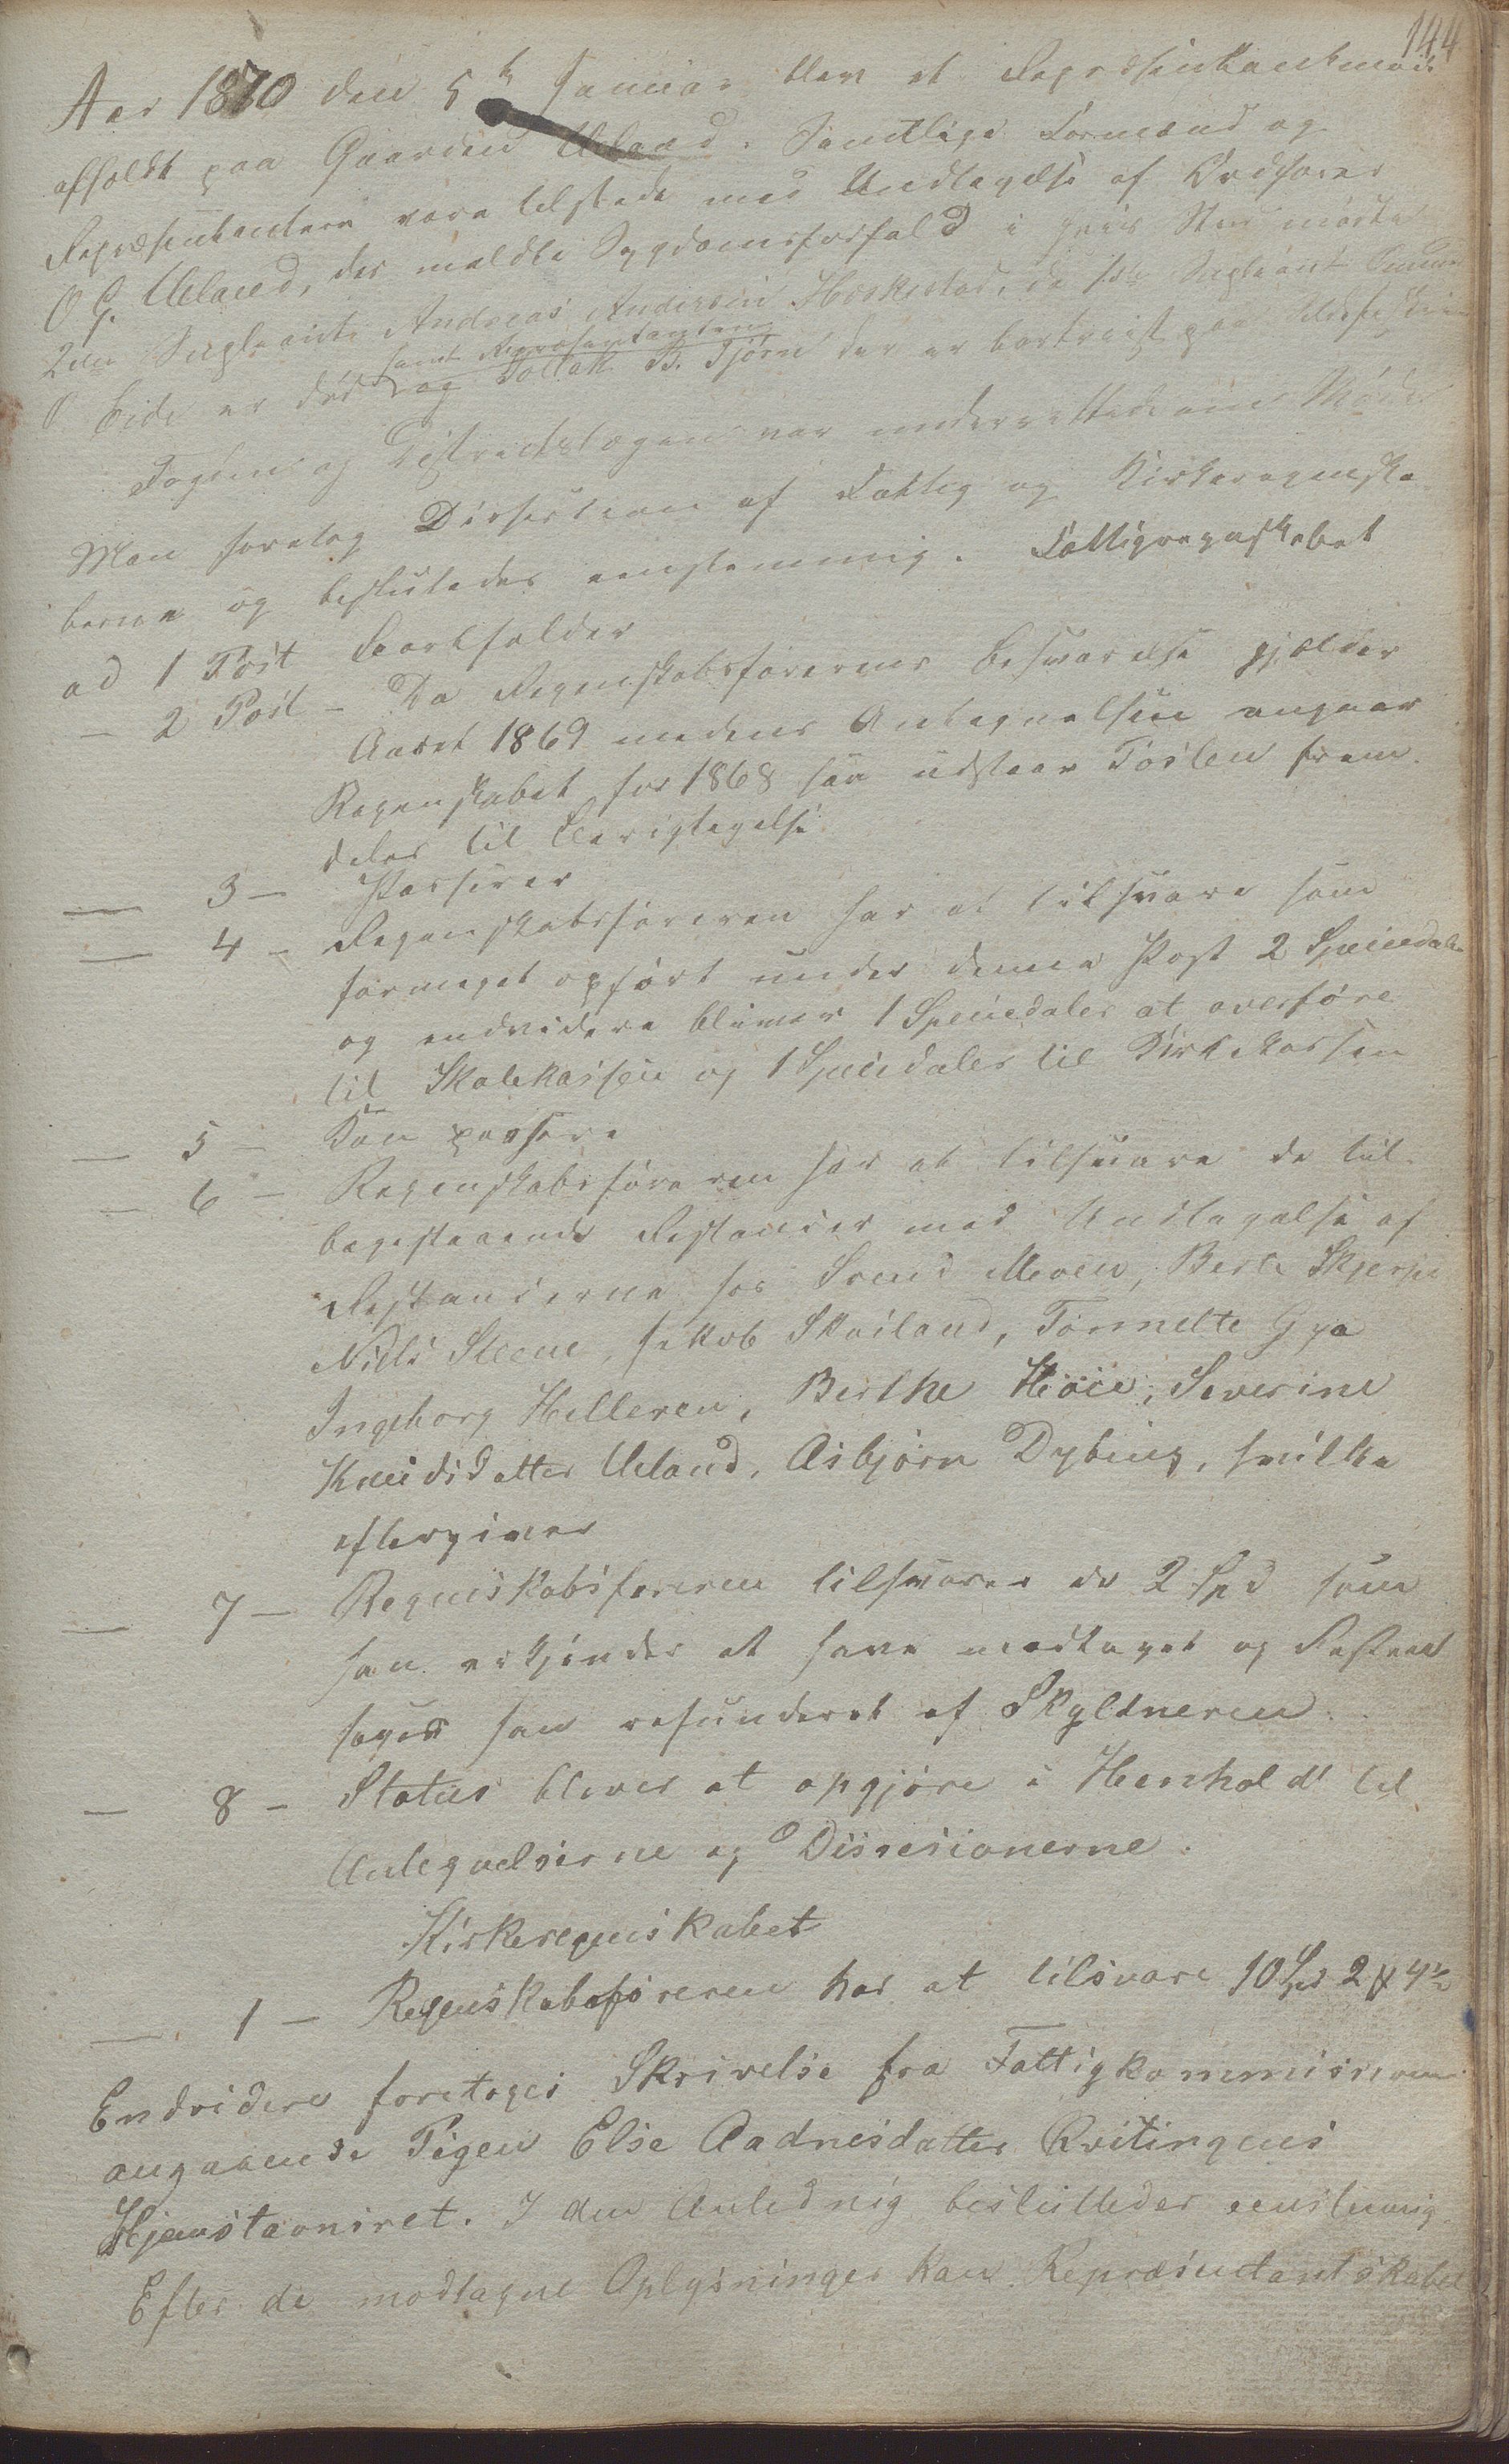 144
Aar 1870 den 5te Januar blev et Repræsentantmøde
afholdt paa Gaarden Ueland. Samtlige Formænd og
Repræsentantere vare tilstede med Undtagelse af Ordfører
O G. Ueland, der meldte Sygdomsforfald i hvis Sted mødte
2den Supleant Andreas Andersen Heskestad, da 1ste Supleant
O Eide er død og Tollak B. Tjørn der er bortreist paa
samt Repræsentanten
Fogden og Distriktslægen var underrettede om Mødet
Man foretog Dissision af Fattig og Kirkeregnska-
berne og besluttedes eenstemmig. Fattigregnskabet
ad 1 Post Bortfalder
— 2 Post - Da Regnskabsførerens Besvarelse gjælder
Aaret 1869 medens Antegnelsen angaar
Regnskabet for 1868 saa udstaar Posten frem-
deles til Berigtigelse
— 3 — Passerer
— 4 - Regnskabsføreren har at tilsvare som
formeget opført under denne Post 2 Speciedaler
og endvidere bliver 1 Speciedaler at overføre
til Skolekassen og 1 Speciedaler til Kirkekassen
— 5 — Kan passere
— 6 — Regnskabsføreren har at tilsvare de til-
bagestaaende Restancer med Undtagelse af
Restancerne for Svend Moen, Berte Skjerpe
Niels Steene, Jakob Skailand, Tønnette Gya
Ingeborg Helleren, Berthe Høie, Severine
Knudsdatter Ueland, Asbjørn Dybing, hvilke
eftergives
— 7 — Regnskabsføreren tilsvarer de 2 Spd som
han erkjender at have modtaget og Resten
søges han refunderet af Skyldneren.
— 8 - Status bliver at opgjøre i Henhold til
Antegnelserne og Dissesionerne.
Kirkeregnskabet
— 1 — Regenskabsføreren har at tilsvare 10 Spd 2 # 4 s
Endvidere foretoges Skrivelse fra Fattigkommissionen
angaaende Pigen Else Aadnesdatter Kvitingens
Hjemstavnsret. I den Anledning besluttedes eenstemmig.
Efter de modtagne Oplysninger kan Repræsentantskabet